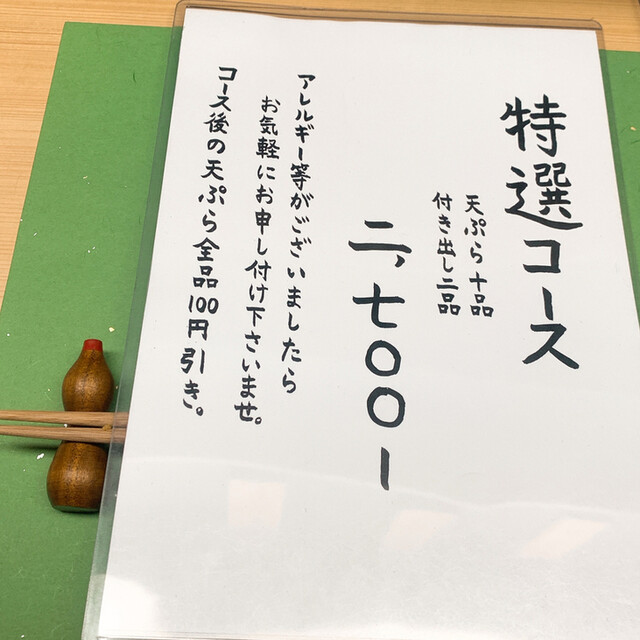 特選コース
天ぷら 十品
付き出し二品
二、七〇〇ー
アレルギー等がございましたら
お気軽にお申し付け下さいませ。
コース後の天ぷら全品100円引き。